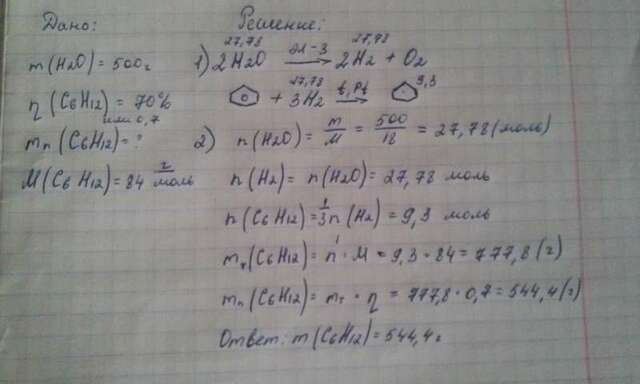 Дано:
m(H2O) = 500г
η(C6H12) = 70%
или 0,7
mп(C6H12) = ?
M(C6H12) = 84 г/моль
Решение:
27,78 27,78
1) 2H2O эл-з → 2H2 + O2
27,78 9,3
+ 3H2 t, Pt →
2) n(H2O) = m/M = 500/18 = 27,78 (моль)
n(H2) = n(H2O) = 27,78 моль
n(C6H12) = 1/3 n(H2) = 9,3 моль
mт(C6H12) = n · M = 9,3 · 84 = 777,8 (г)
mп(C6H12) = mт · η = 777,8 · 0,7 = 544,4 (г)
Ответ: m(C6H12) = 544,4 г